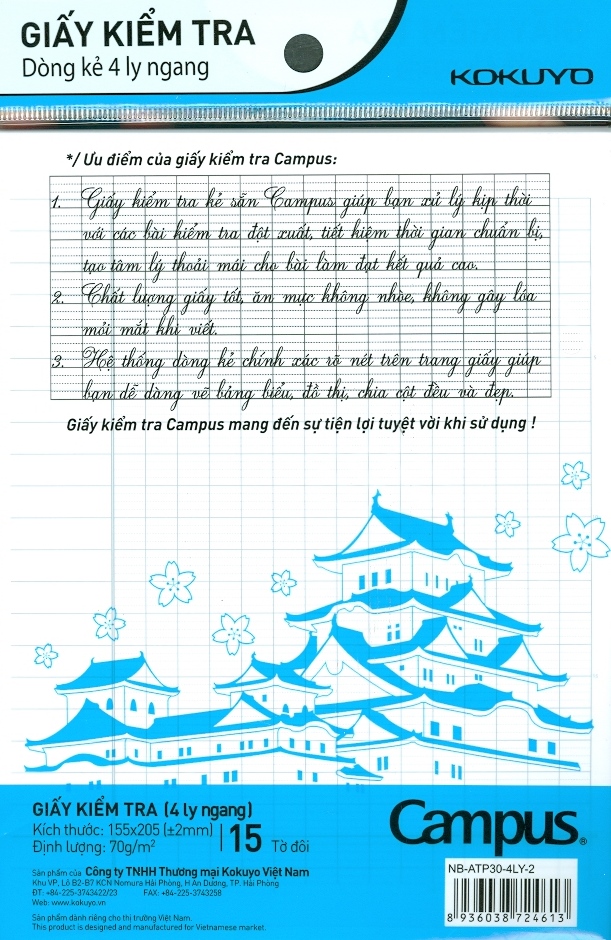 GIẤY KIỂM TRA
Dòng kẻ 4 ly ngang
KOKUYO
*/ Ưu điểm của giấy kiểm tra Campus:
1. Giấy kiểm tra kẻ sẵn Campus giúp bạn xử lý kịp thời
với các bài kiểm tra đột xuất, tiết kiệm thời gian chuẩn bị,
tạo tâm lý thoải mái cho bài làm đạt kết quả cao.
2. Chất lượng giấy tốt, ăn mực không nhòe, không gây lóa
mỏi mắt khi viết.
3. Hệ thống dòng kẻ chính xác rõ nét trên trang giấy giúp
bạn dễ dàng vẽ bảng biểu, đồ thị, chia cột đều và đẹp.
Giấy kiểm tra Campus mang đến sự tiện lợi tuyệt vời khi sử dụng !
GIẤY KIỂM TRA (4 ly ngang)
Kích thước: 155x205 (±2mm)
Định lượng: 70g/m²
15 Tờ đôi
Campus®
Sản phẩm của Công ty TNHH Thương mại Kokuyo Việt Nam
Khu VP, Lô B2-B7 KCN Nomura Hải Phòng, H An Dương, TP. Hải Phòng
ĐT: +84-225-3743422/23 FAX: +84-225-3743258
Web: www.kokuyo.vn
Sản phẩm dành riêng cho thị trường Việt Nam.
This product is designed and manufactured for Vietnamese market.
NB-ATP30-4LY-2
8 936038 724613